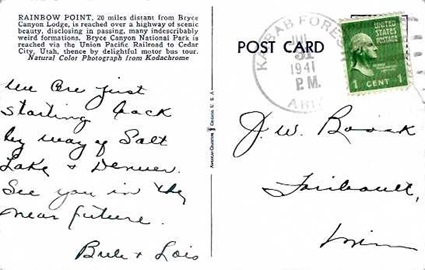 RAINBOW POINT, 20 miles distant from Bryce
Canyon Lodge, is reached over a highway of scenic
beauty, disclosing in passing, many indescribably
weird formations. Bryce Canyon National Park is
reached via the Union Pacific Railroad to Cedar
City, Utah, thence by delightful motor bus tour.
Natural Color Photograph from Kodachrome
We are just
starting back
by way of Salt
Lake & Denver.
See you in the
near future.
& Lois
POST CARD
KAIBAB FOREST
31
1941
P.M.
ARIZ
UNITED STATES
POSTAGE
1 CENT 1
J. W.
Faribault,
Minn